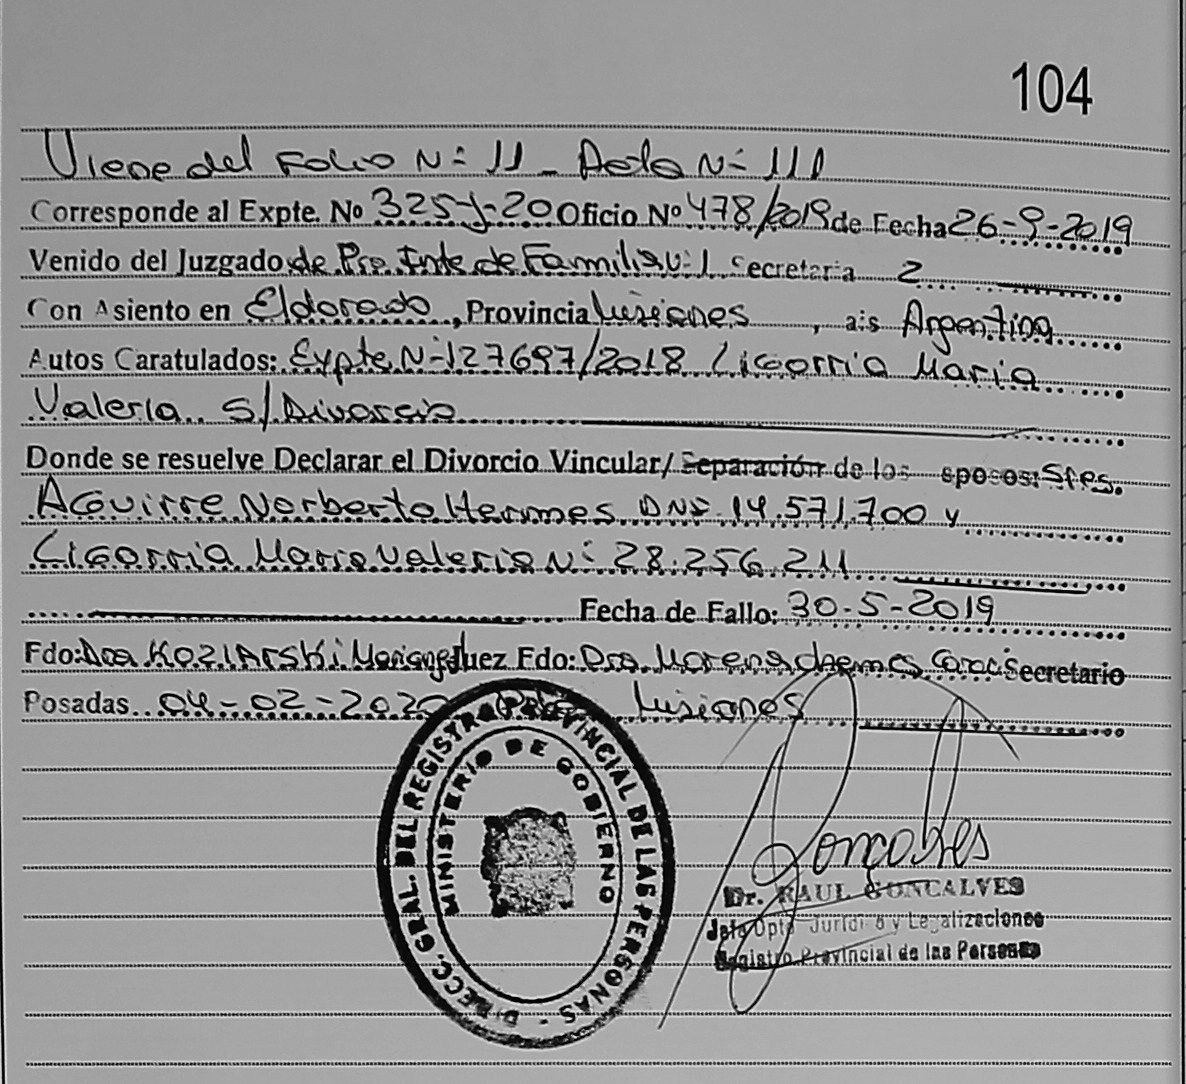 104
Viene del Folio N° 11 - Acta N° 111
Corresponde al Expte. No 325-J-20 Oficio Nº 478/2019 de Fecha 26-9-2019
Venido del Juzgado de Pra. Inte de Familia Nº 1 Secretaria 2
Con Asiento en Eldorado, Provincia Misiones, ais Argentina
Autos Caratulados: Expte. N° 127697/2018 Ligorria Maria
Valeria S/ Divorcio
Donde se resuelve Declarar el Divorcio Vincular/ Separación de los sposos: Sres.
Aguirre Norberto Hermes DNI 14.571.700 y
Ligorria Maria Valeria N° 28.256.211
Fecha de Fallo: 30-5-2019
Fdo: Dra Koziarski Juez Fdo: Dra. Morena Secretario
Posadas 04-02-2020 Misiones
DIRECC. GRAL. DEL REGISTRO PROVINCIAL DE LAS PERSONAS -
MINISTERIO DE GOBIERNO
Gonçalves
Dr. RAUL GONCALVES
Jefe Dpto Juridico y Legalizaciones
Registro Provincial de las Personas